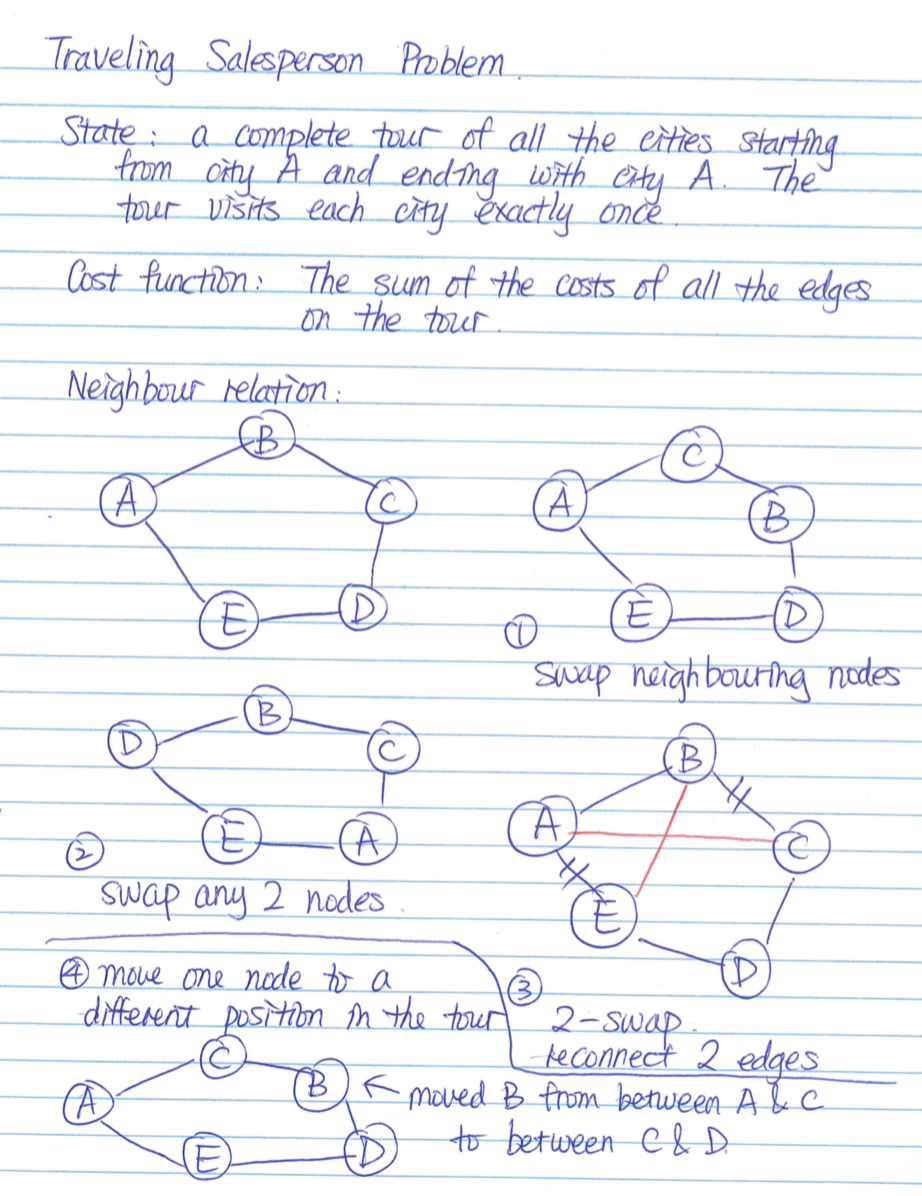 Traveling Salesperson Problem.
State: a complete tour of all the cities starting
from city A and ending with city A. The
tour visits each city exactly once.
Cost function: The sum of the costs of all the edges
on the tour.
Neighbour relation:
B
A
C
E
D
C
A
B
E
D
①
swap neighbouring nodes
B
D
C
E
A
②
swap any 2 nodes.
B
A
C
E
D
③
2-swap.
reconnect 2 edges
④ move one node to a
different position in the tour
C
A
B
E
D
← moved B from between A & C
to between C & D.